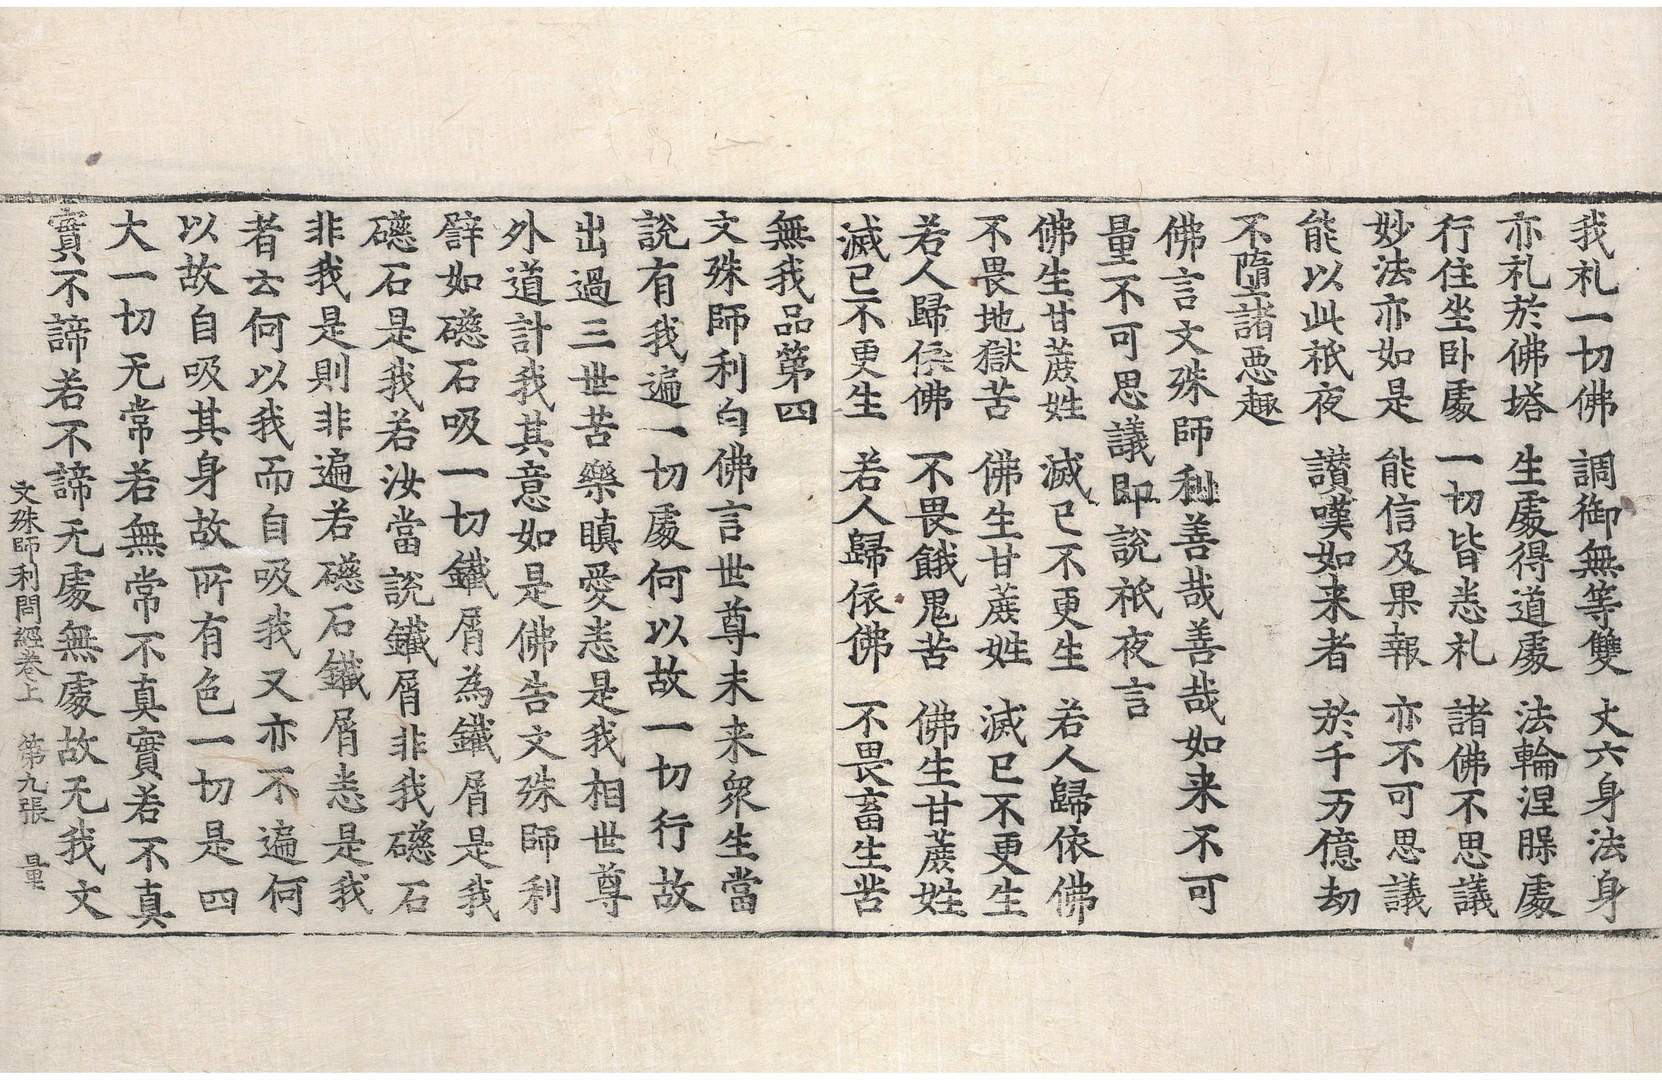 我礼一切佛 調御無等雙 丈六身法身
亦礼於佛塔 生處得道處 法輪涅槃處
行住坐卧處 一切皆悉礼 諸佛不思議
妙法亦如是 能信及果報 亦不可思議
能以此祇夜 讃嘆如来者 於千万億劫
不墮諸惡趣
佛言文殊師利善哉善哉如来不可
量不可思議即說祇夜言
佛生甘蔗姓 滅已不更生 若人歸依佛
不畏地獄苦 佛生甘蔗姓 滅已不更生
若人歸依佛 不畏餓鬼苦 佛生甘蔗姓
滅已不更生 若人歸依佛 不畏畜生苦
無我品第四
文殊師利白佛言世尊未来衆生當
說有我遍一切處何以故一切行故
出過三世苦樂瞋愛悉是我相世尊
外道計我其意如是佛告文殊師利
譬如礠石吸一切鐵屑為鐵屑是我
礠石是我若汝當說鐵屑非我礠石
非我是則非遍若礠石鐵屑悉是我
者云何以我而自吸我又亦不遍何
以故自吸其身故所有色一切是四
大一切无常若無常不真實若不真
實不諦若不諦无處無處故无我文
文殊師利問經卷上 第九張 量